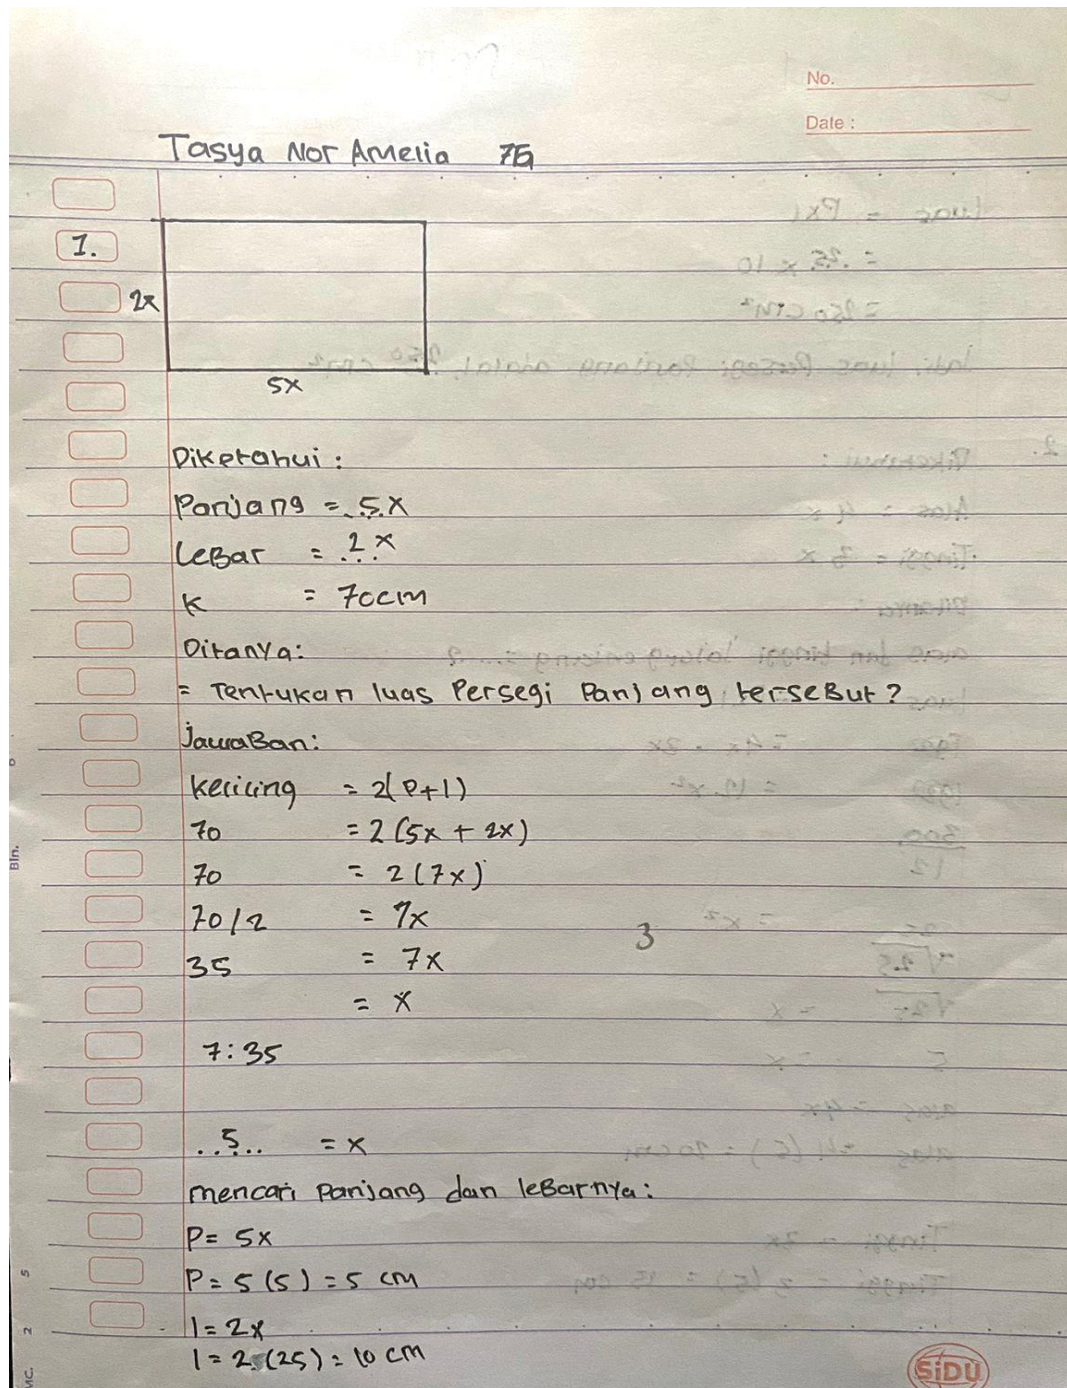 No.
Date :
Tasya Nor Amelia 7G
1.
2x
5x
Diketahui :
Panjang = .5.x
LeBar = .2.x
K = 70cm
Ditanya:
= Tentukan luas Persegi Panjang terseBut?
jawaBan:
keliling = 2(P+l)
70 = 2 (5x + 2x)
70 = 2 (7x)
70/2 = 7x
35 = 7x
3
= x
7:35
..5.. = x
mencari Panjang dan leBarnya:
P= 5x
P= 5 (5) = 5 cm
l = 2x
l = 2 (25) = 10 cm
SiDU
Bln.
5
2